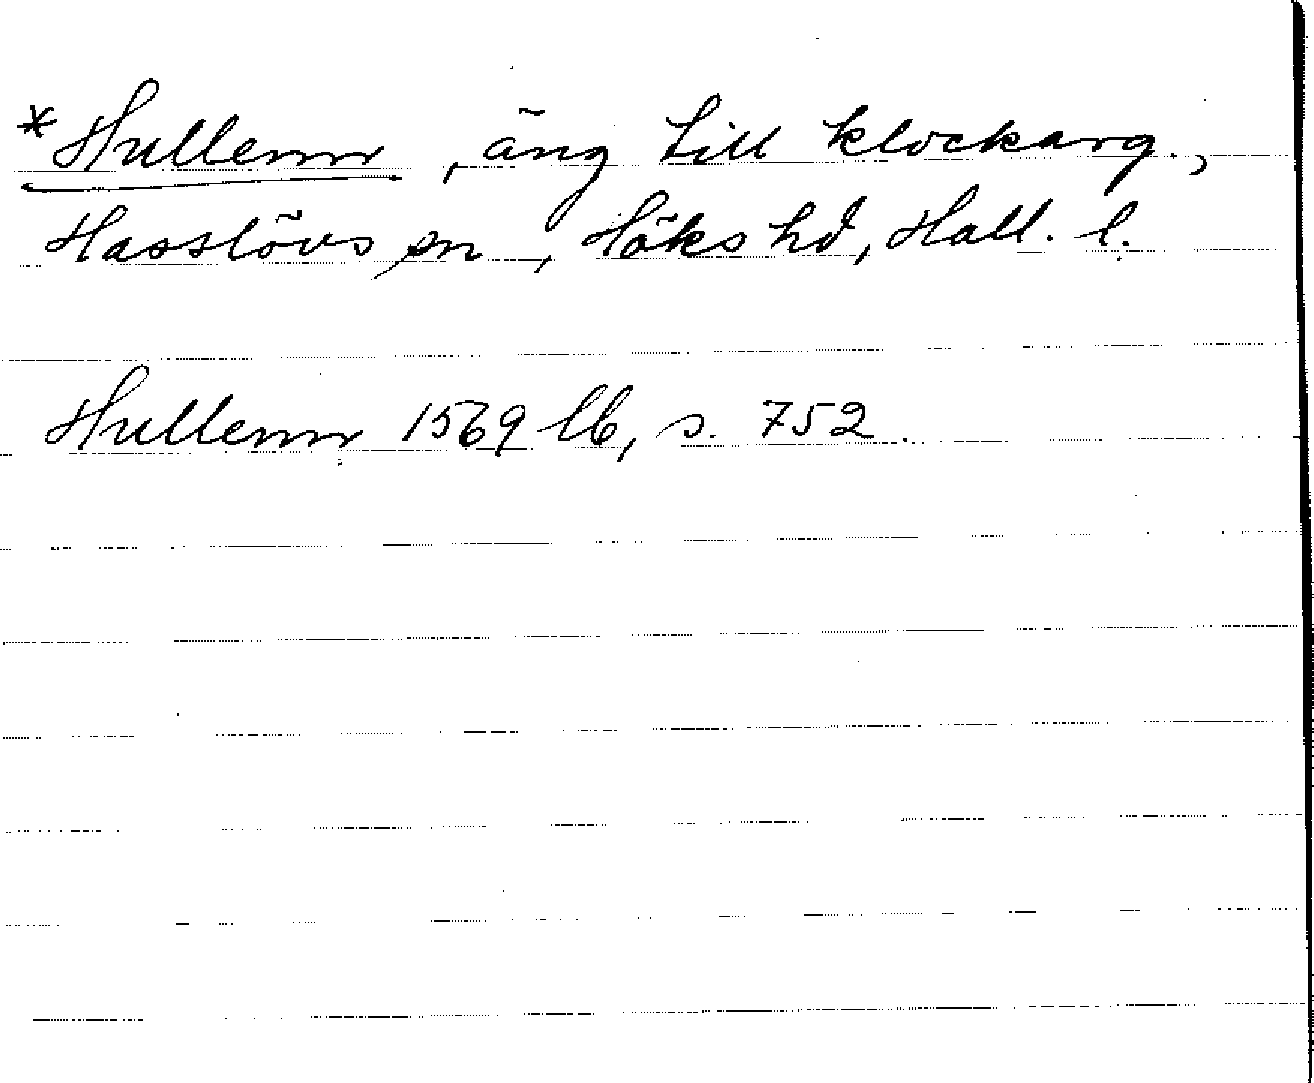 *Hullenn, äng till klockarg.,
Hasslövs sn, Höks hd, Hall. l.
Hullenn 1569 lb, s. 752.